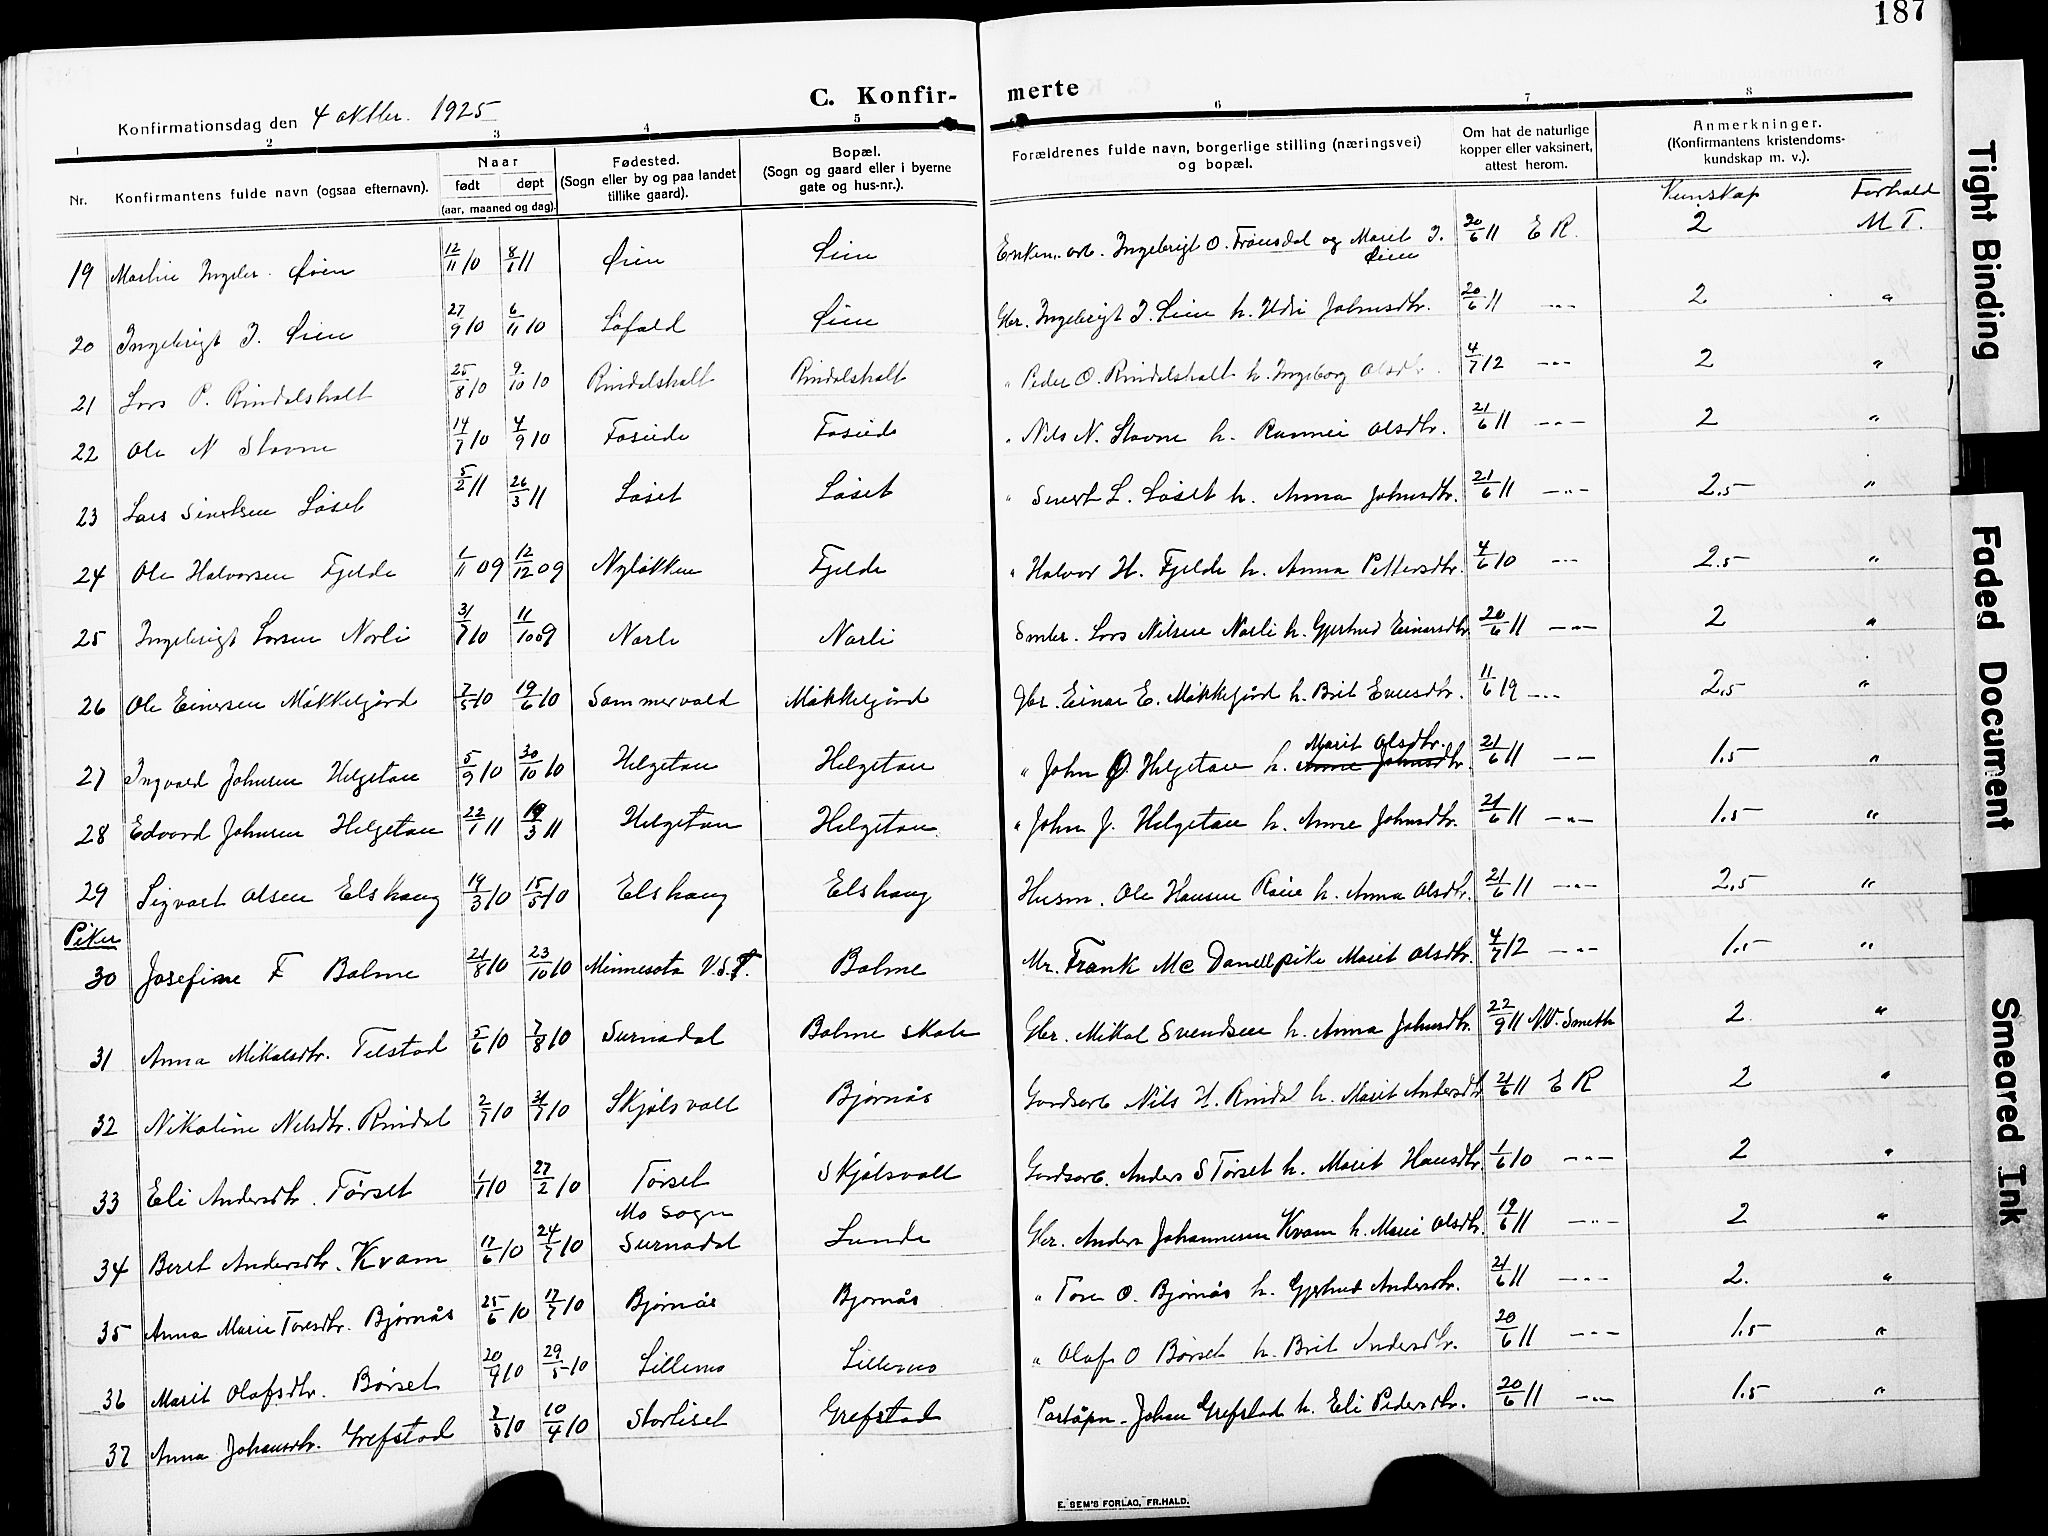 187
C. Konfir- merte
Konfirmationsdag den 4 oktbr. 1925
1 2 3 4 5 6 7 8
Nr. Konfirmantens fulde navn (ogsaa efternavn). Naar født døpt (aar, maaned og dag). Fødested. (Sogn eller by og paa landet tillike gaard). Bopæl. (Sogn og gaard eller i byerne gate og hus-nr.). Forældrenes fulde navn, borgerlige stilling (næringsvei) og bopæl. Om hat de naturlige kopper eller vaksinert, attest herom. Anmerkninger. (Konfirmantens kristendoms-kundskap m. v.).
Kunskap Forhald
19 Martin Ingebr. Øien 12/11 10 8/1 11 Øien Øien Ingebrigt O. Trønsdal og Marit I. Øien 20/6 11 E R. 2 M T.
20 Ingebrigt I. Øien 27/9 10 6/11 10 Løfald Øien Gbr. Ingebrigt I. Øien h. Johnsdtr. 20/6 11 -"- 2 "
21 Lars P. Rindalsholt 25/8 10 9/10 10 Rindalsholt Rindalsholt " Peder O. Rindalsholt h. Ingeborg Olsdtr. 4/7 12 -"- 2 "
22 Ole N Stavne 14/7 10 4/9 10 Foseide Foseide " Nils N. Stavne h. Rannei Olsdtr. 21/6 11 -"- 2 "
23 Lars Sivertsen Løset 5/2 11 26/3 11 Løset Løset " Sivert L. Løset h. Anna Johnsdtr. 21/6 11 -"- 2.5 "
24 Ole Halvorsen Fjelde 1/11 09 12/12 09 Nyløkken Fjelde " Halvor H. Fjelde h. Anna Pettersdtr. 4/6 10 -"- 2.5 "
25 Ingebrigt Larsen Norli 3/7 10 11/10 09 Norli Norli Smbr. Lars Nilsen Norli h. Gjertrud Einarsdtr. 20/6 11 -"- 2 "
26 Ole Einarsen Møkkelgård 7/5 10 19/6 10 Sommervold Møkkelgård Gbr. Einar E. Møkkelgård h. Brit Evensdtr. 11/6 19 -"- 2.5 "
27 Ingvald Johnsen Helgetun 5/9 10 30/10 10 Helgetun Helgetun " John O. Helgetun h. Marit Olsdtr. Anne Johnsdtr 21/6 11 -"- 1.5 "
28 Edvard Johnsen Helgetun 22/1 11 19/3 11 Helgetun Helgetun " John J. Helgetun h. Anne Johnsdtr. 21/6 11 -"- 1.5 "
29 Sigvart Olsen Elshaug 19/3 10 15/5 10 Elshaug Elshaug Husm. Ole Hansen h. Anna Olsdtr. 21/6 11 -"- 2.5 "
Piker
30 Josefine F Bolme 21/8 10 23/10 10 Minnesota U.S.A. Bolme Mr. Frank Mc Danell pike Marit Olsdtr. 4/7 12 -"- 1.5 "
31 Anna Mikalsdtr. Telstad 5/6 10 7/8 10 Surnadal Bolme skole Gbr. Mikal Svendsen h. Anna Johnsdtr. 22/9 11 N.N. Smeth 2. "
32 Nikoline Nilsdtr. Rindal 2/7 10 31/7 10 Skjølsvoll Bjørnås Gardsarb Nils H. Rindal h. Marit Andersdtr 21/6 11 E R 2 "
33 Eli Andersdtr. Tørset 1/1 10 27/2 10 Tørset Skjølsvoll Gardsarb. Anders S Tørset h. Marit Hansdtr 1/6 10 -"- 2 "
34 Beret Andersdtr. Kvam 17/6 10 24/7 10 Mo sogn Surnadal Lunde Gbr. Anders Johannesen Kvam h. Marie Olsdtr. 19/6 11 -"- 2 "
35 Anna Marie Toresdtr. Bjørnås 25/6 10 17/7 10 Bjørnås Bjørnås " Tore O. Bjørnås h. Gjertrud Andersdtr. 21/6 11 -"- 2. "
36 Marit Olafsdtr. Børset 20/4 10 29/5 10 Lillemo Lillemo " Olaf O Børset h. Brit Andersdtr. 20/6 11 -"- 1.5 "
37 Anna Johansdtr. Grefstad 2/3 10 10/4 10 Storliset Grefstad Poståpn. Johan Grefstad h. Eli Pedersdtr. 20/6 11 -"- 1.5 "
E. SEM'S FORLAG, FR.HALD.
Tight Binding
Faded Document
Smeared Ink